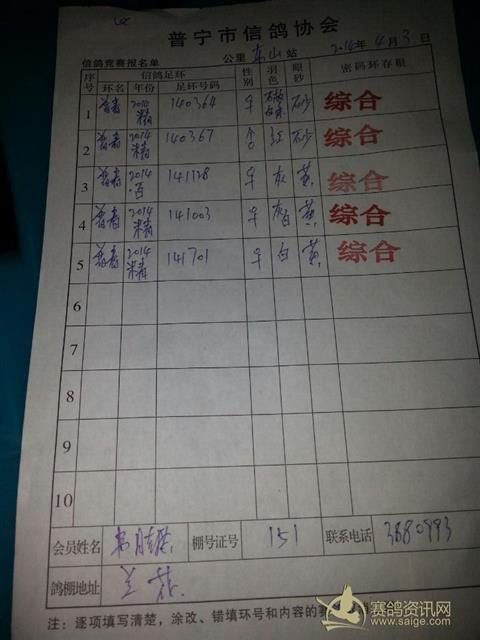 普宁市信鸽协会
信鸽竞赛报名单 公里 东山 站 2014年4月3日
序号 信鸽足环 性别 羽色 眼砂 密码环存根
环名 年份 足环号码
1 普青 2014 精 140364 ♀ 砂 综合
2 普青 2014 精 140367 红 砂 综合
3 普青 2014 141128 ♀ 灰 黄 综合
4 普青 2014 精 141003 ♀ 灰白 黄 综合
5 普青 2014 精 141701 ♀ 白 黄 综合
6
7
8
9
10
会员姓名 棚号证号 151 联系电话 3880993
鸽棚地址
注：逐项填写清楚，涂改、错填环号和内容的
赛鸽资讯网
www.saige.com